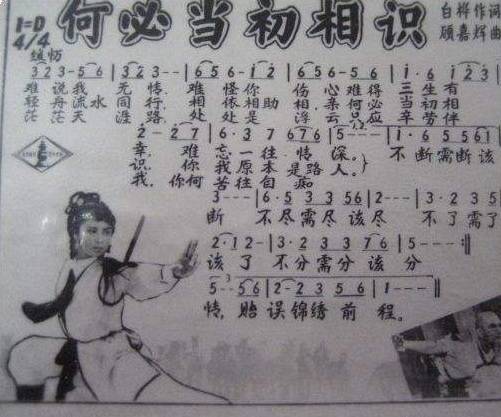 何必当初相识
1=D
4/4
白桦作词
顾嘉辉曲
缓 怅
3 2 3 - 5 6 | 3 2 3 - - | 6 5 6 - i 2 | 6 5 6 - 5 6 | i · 6 i 2 3 |
难说我 无情. 难怪你 伤心难得 三生有
轻舟流水 同行. 相依相助 相亲何必 当初相
茫茫天 涯路. 处处是 浮云只应 辛劳伴
2 - 2 7 | 6 · 3 7 6 7 6 | 5 - - - | 1 · 6 5 5 6 1 |
幸, 难忘一往情深。 不断需断该
识, 你我原本是路人。}
我. 你何苦往自痴
3 - - - | 6 · 5 3 3 5 6 | 2 - - - | 3 · 2 3 5
断 不尽需尽该尽 不了需了
2 · 1 2 - | 3 · 2 3 3 7 6 | 5 - - - :||
该了 不分需分该分
5 - - 5 6 | 2 - 2 3 5 6 | 1 - - - ||
情, 贻误锦绣前程。